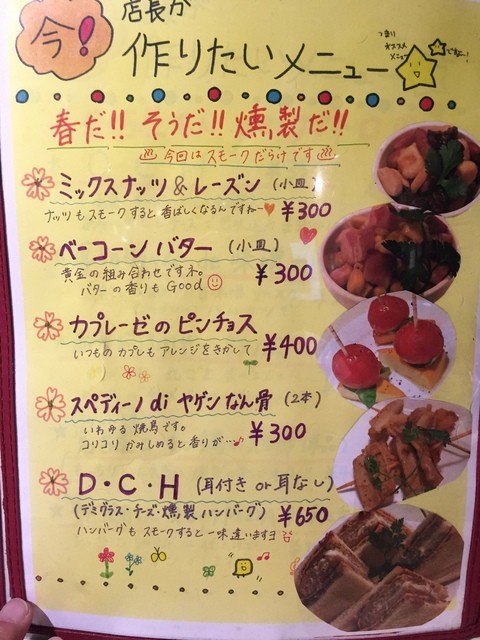 今!
店長が
作りたいメニュー
つまり
オススメ
メニュー
ですよー!
春だ!! そうだ!! 燻製だ!!
♨今回はスモークだらけです♨
ミックスナッツ&レーズン (小皿)
ナッツもスモークすると香ばしくなるんですねー♥ ¥300
ベーコーンバター (小皿)
黄金の組み合わせですネ。
バターの香りもGood ¥300
カプレーゼのピンチョス
いつものカプレもアレンジをきかして ¥400
スペディーノ di ヤゲンなん骨 (2本)
いわゆる焼鳥です。
コリコリかみしめると香りが…♪ ¥300
D・C・H (耳付き or 耳なし)
(デミグラス・チーズ・燻製ハンバーグ) ¥650
ハンバーグもスモークすると一味違いますヨ